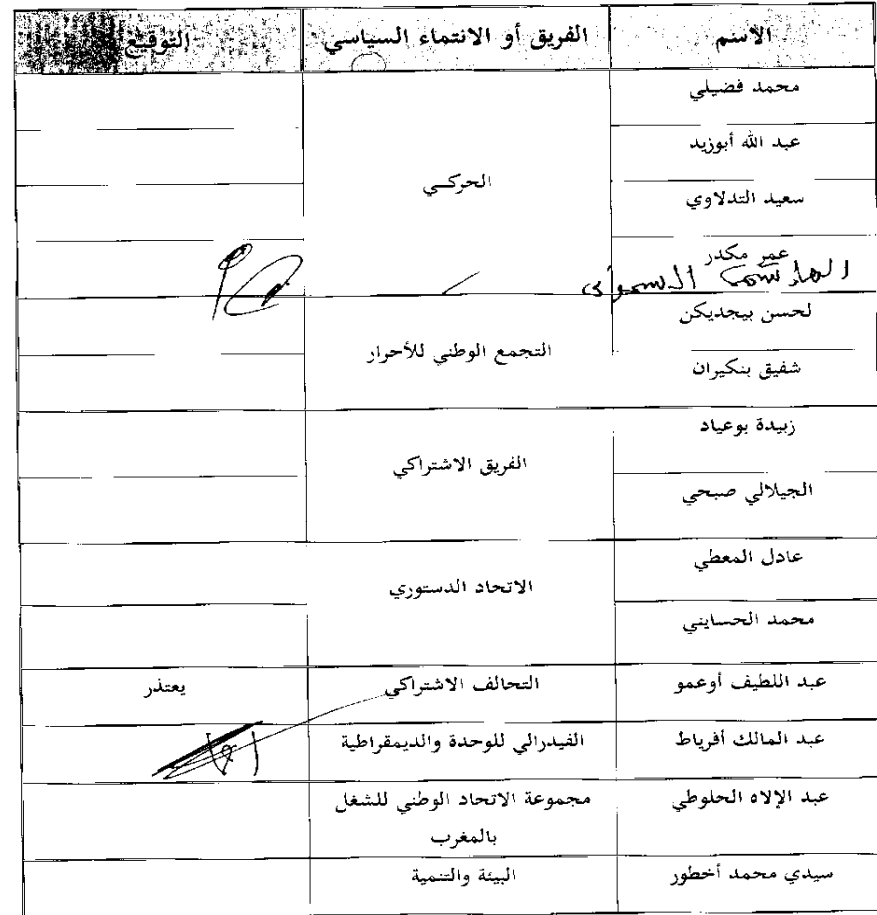 الاسم الفريق أو الانتماء السياسي التوقيع
محمد فضيلي
عبد الله أبوزيد
الحركـي
سعيد التدلاوي
عمر مكدر
لحسن بيجديكن
التجمع الوطني للأحرار
شفيق بنكيران
زبيدة بوعياد
الفريق الاشتراكي
الجيلالي صبحي
عادل المعطي
الاتحاد الدستوري
محمد الحسايني
عبد اللطيف أوعمو التحالف الاشتراكي يعتذر
عبد المالك أفرياط الفيدرالي للوحدة والديمقراطية
عبد الإلاه الحلوطي مجموعة الاتحاد الوطني للشغل
بالمغرب
سيدي محمد أخطور البيئة والتنمية